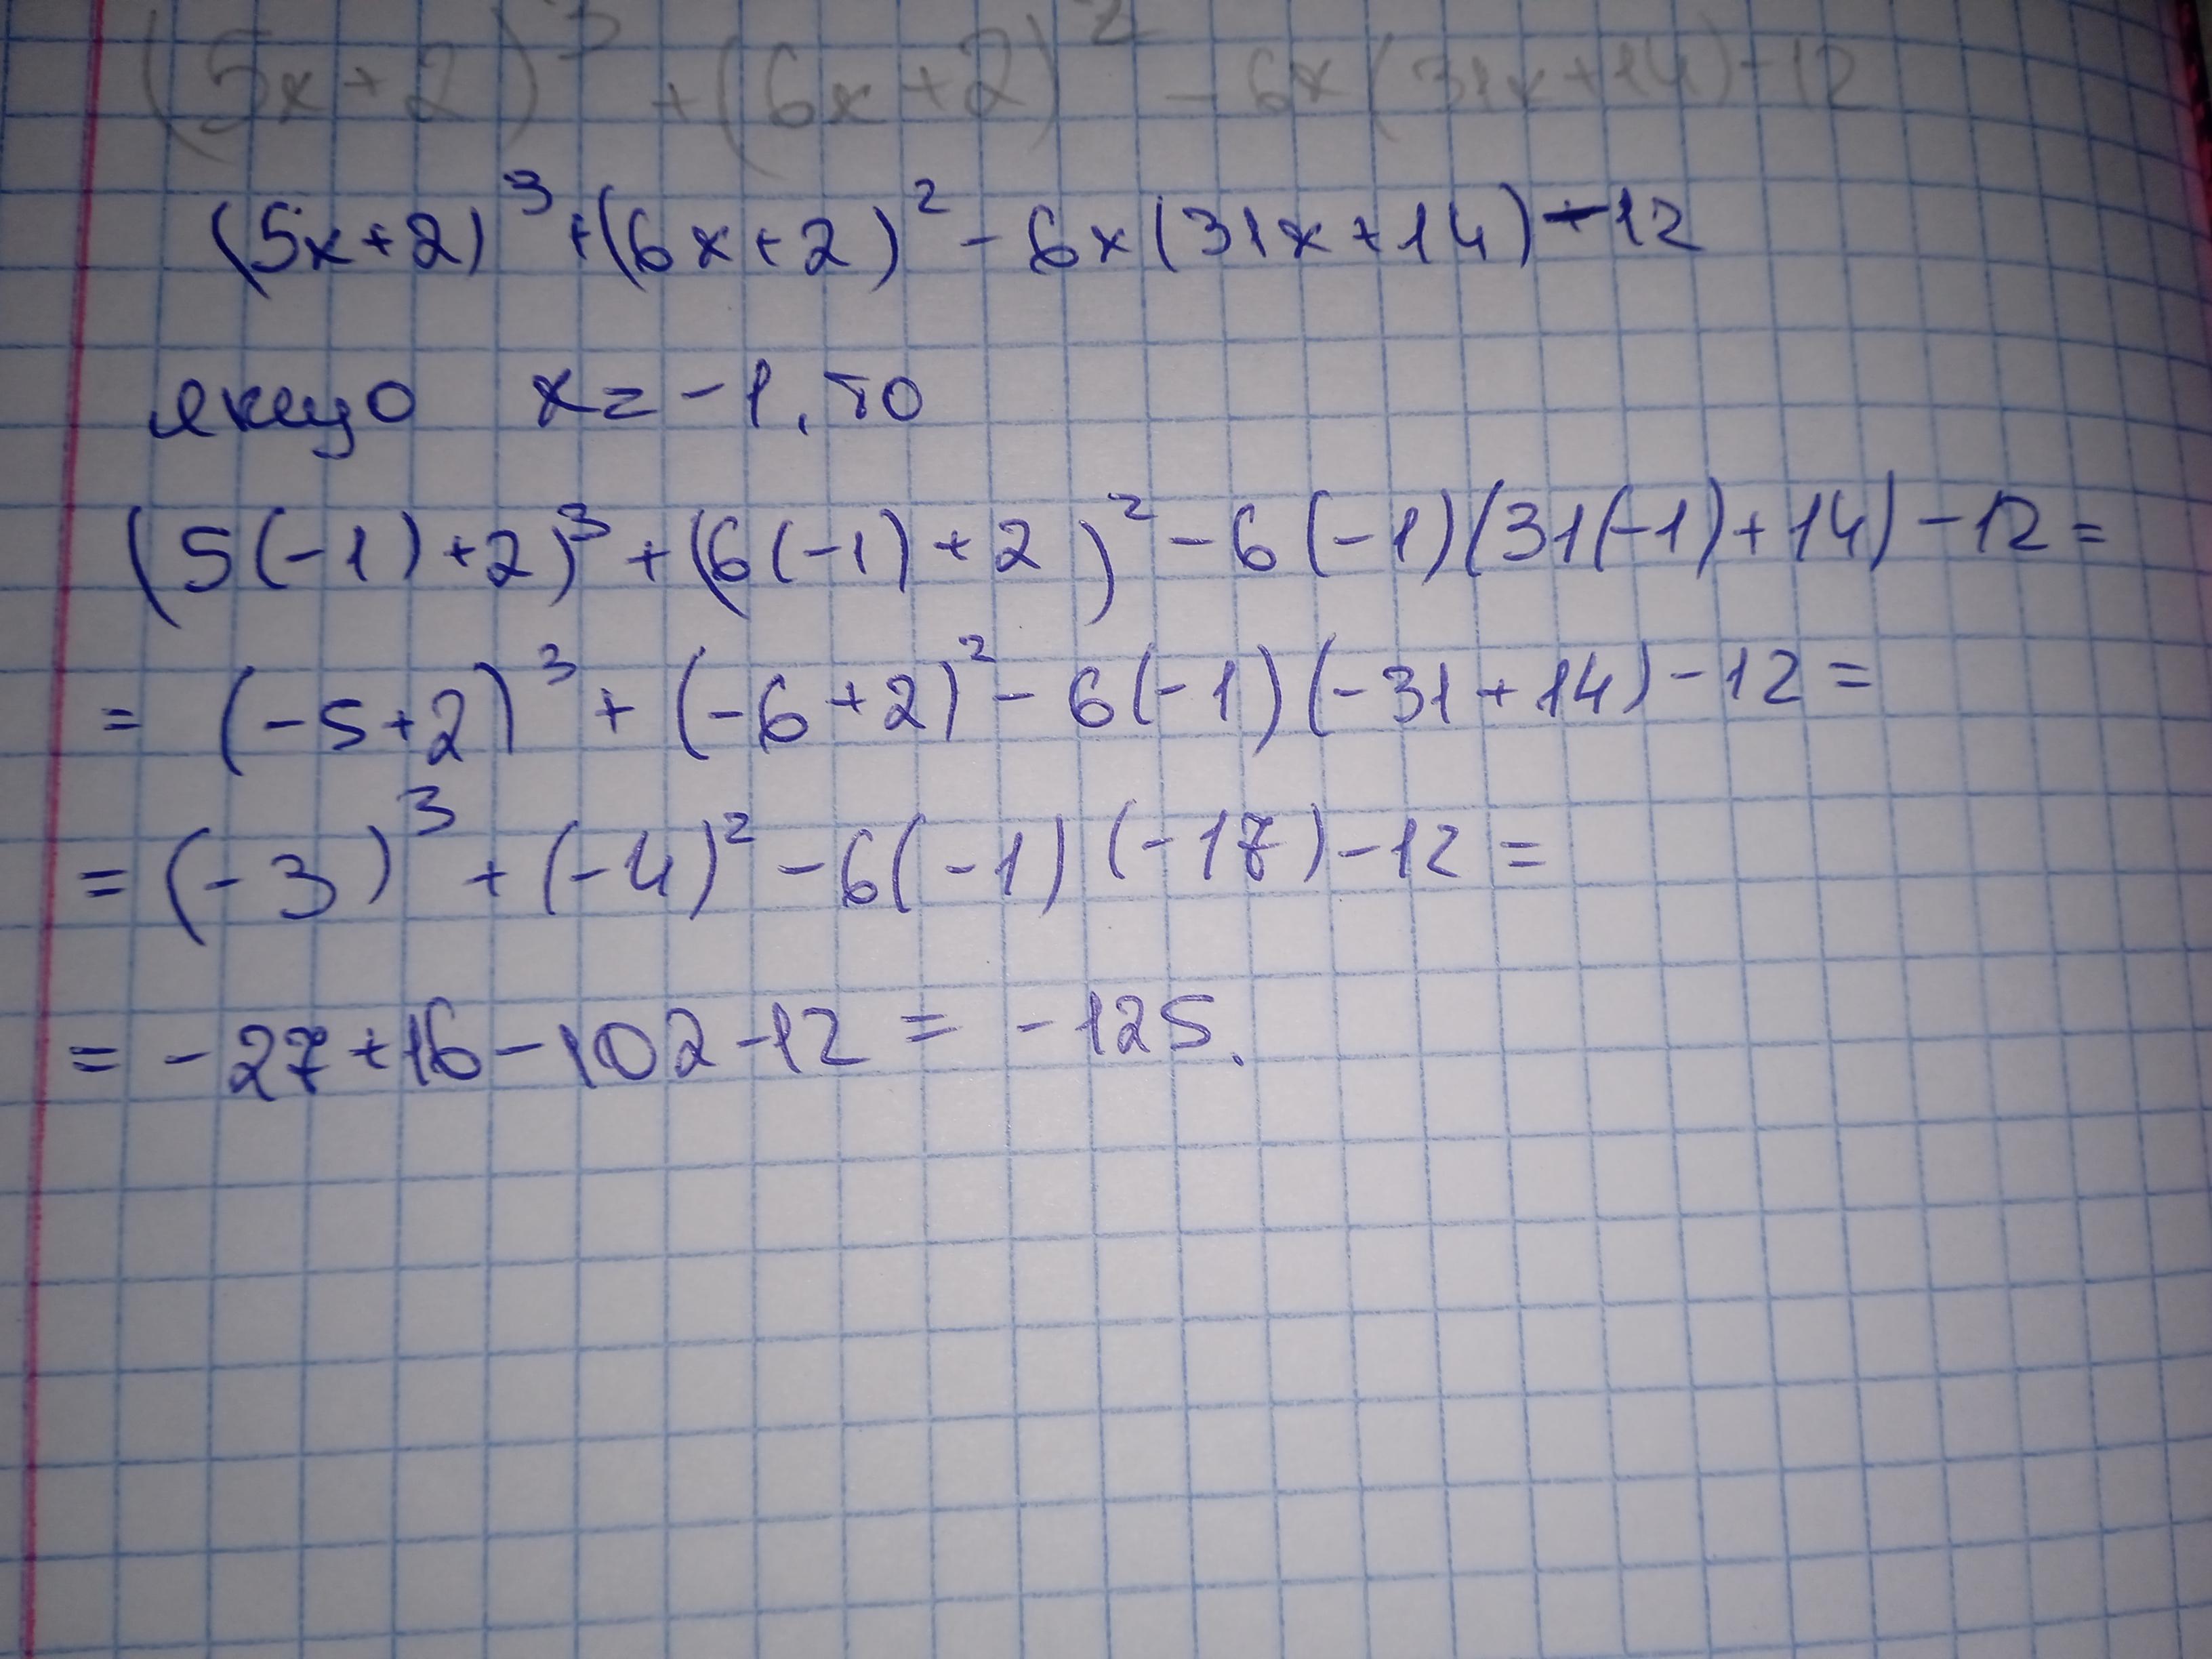 (5x+2)³+(6x+2)²-6x(31x+14)-12
(5x+2)³+(6x+2)²-6x(31x+14)-12
якщо x=-1, то
(5(-1)+2)³+(6(-1)+2)²-6(-1)(31(-1)+14)-12=
=(-5+2)³+(-6+2)²-6(-1)(-31+14)-12=
=(-3)³+(-4)²-6(-1)(-17)-12=
=-27+16-102-12=-125.